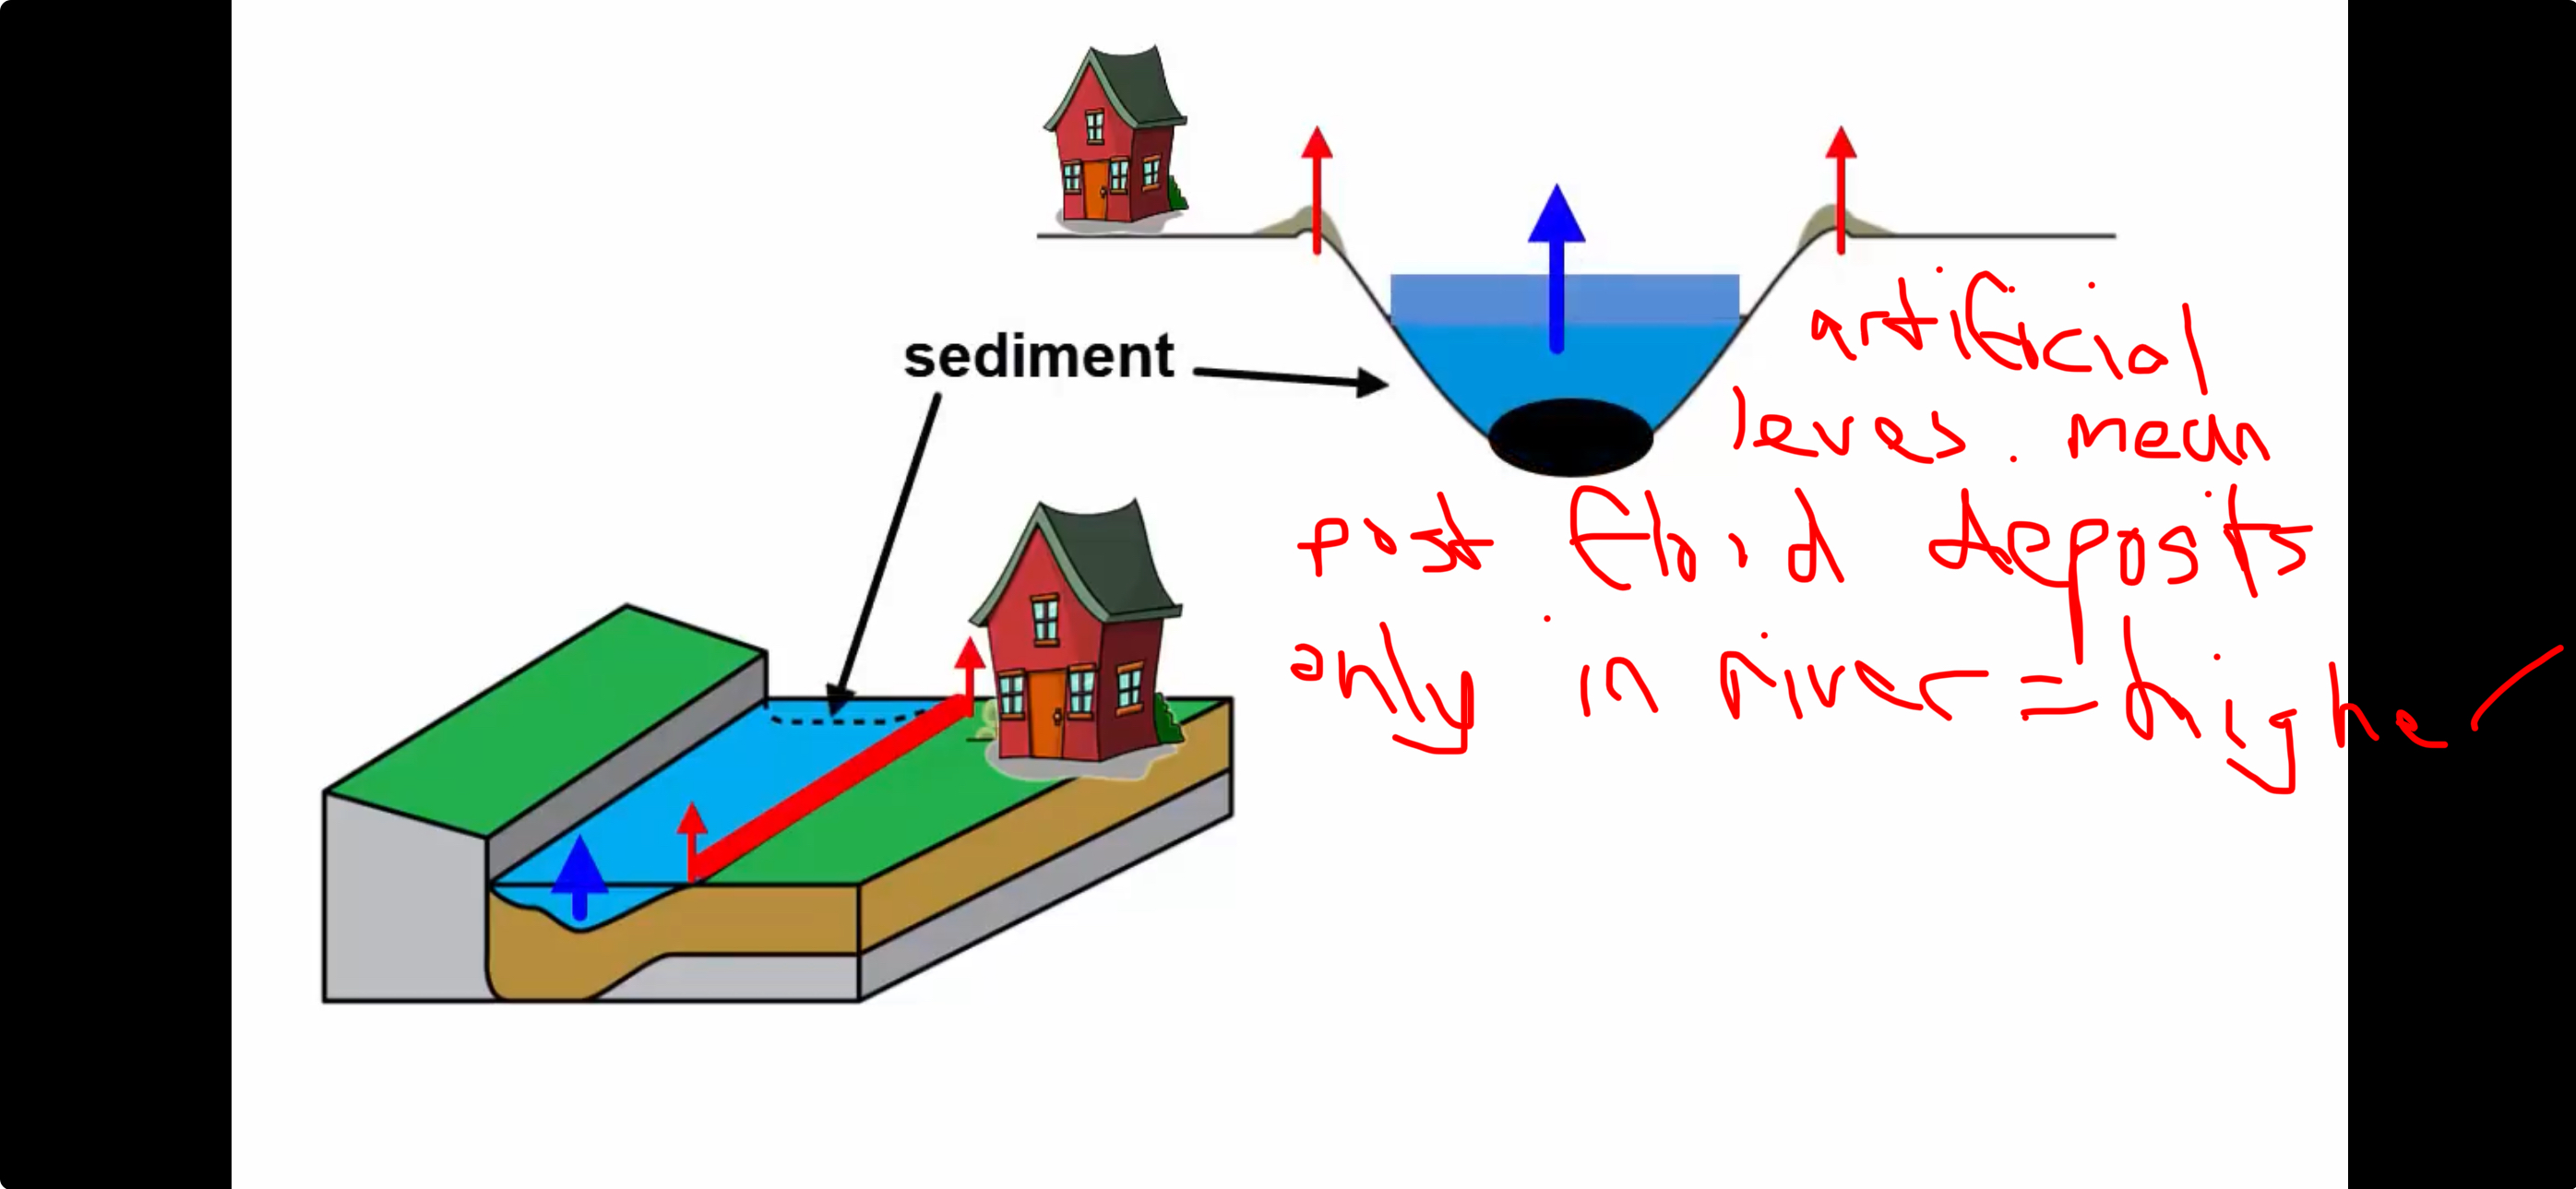 sediment
artificial
leves. mean
post floid deposits
only in river = higher